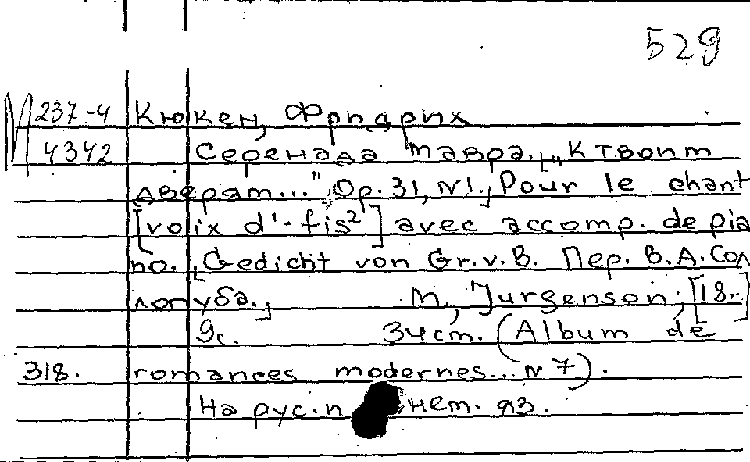 529
237-4 Кюкен, Фридрих
4342 Серенада мавра. „К твоим
дверям..." Op. 31, №1, Pour le chant
[voix d'-fis²] avec accomp. de pia
no. Gedicht von Gr. v. B. Пер. В. А. Сол
логуба. М., Jurgenson, [18.
9с. 34cm. (Album de
318. romances modernes... №7).
На рус. и нем. яз.